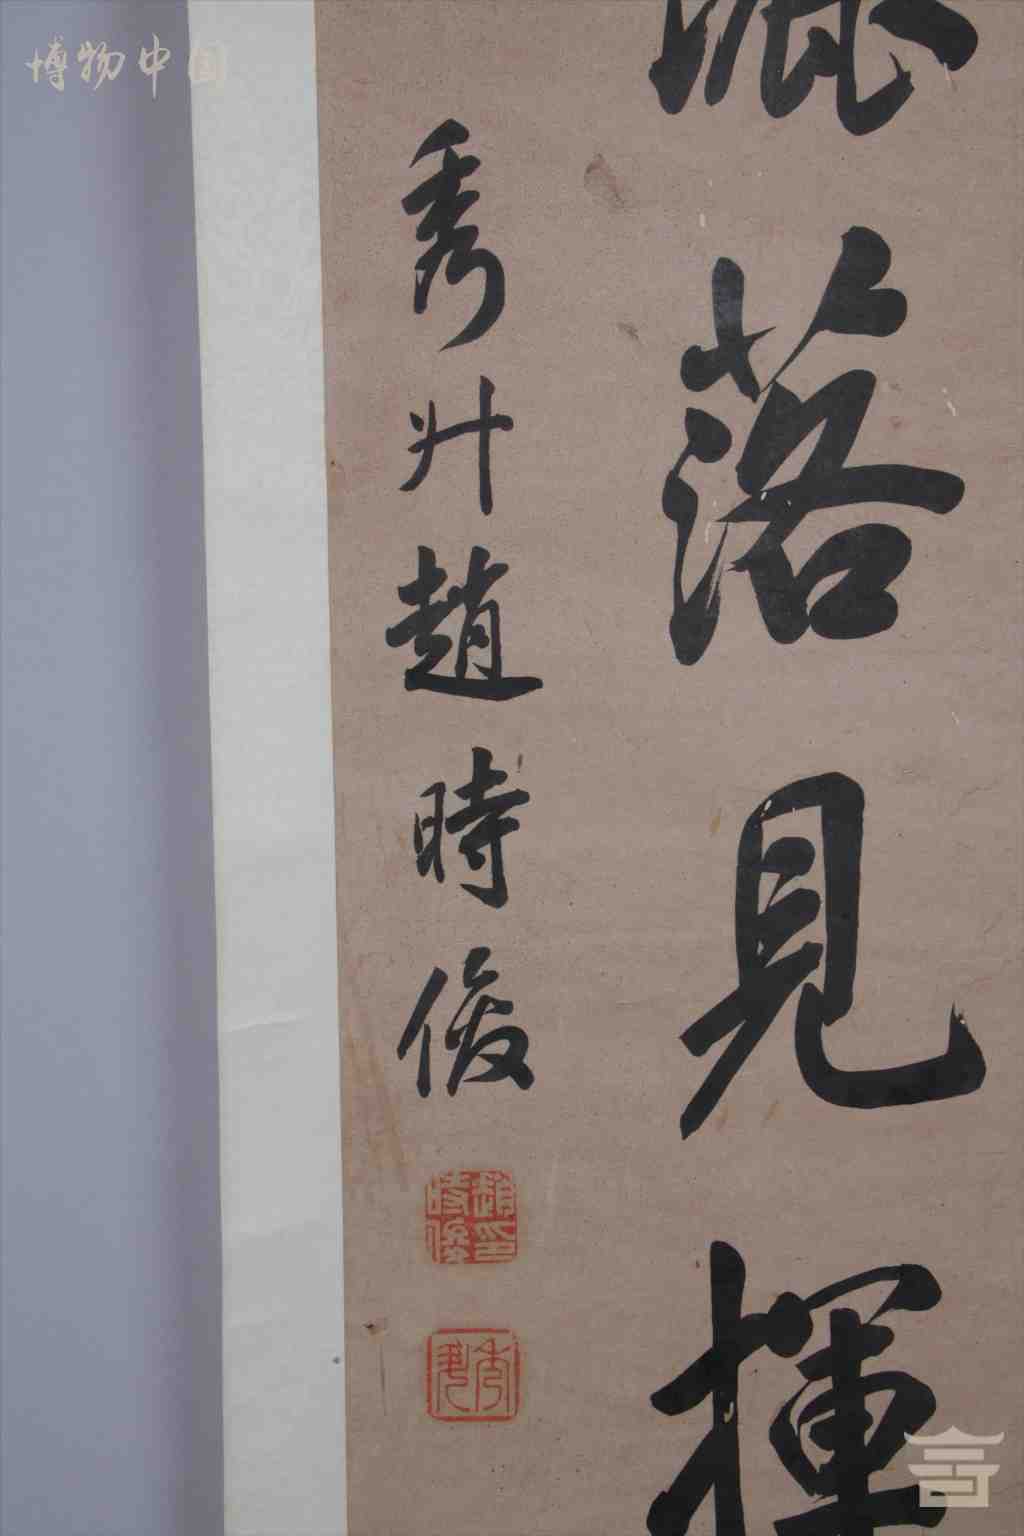 博物中国
落見揮
秀升趙時俊
趙印時俊